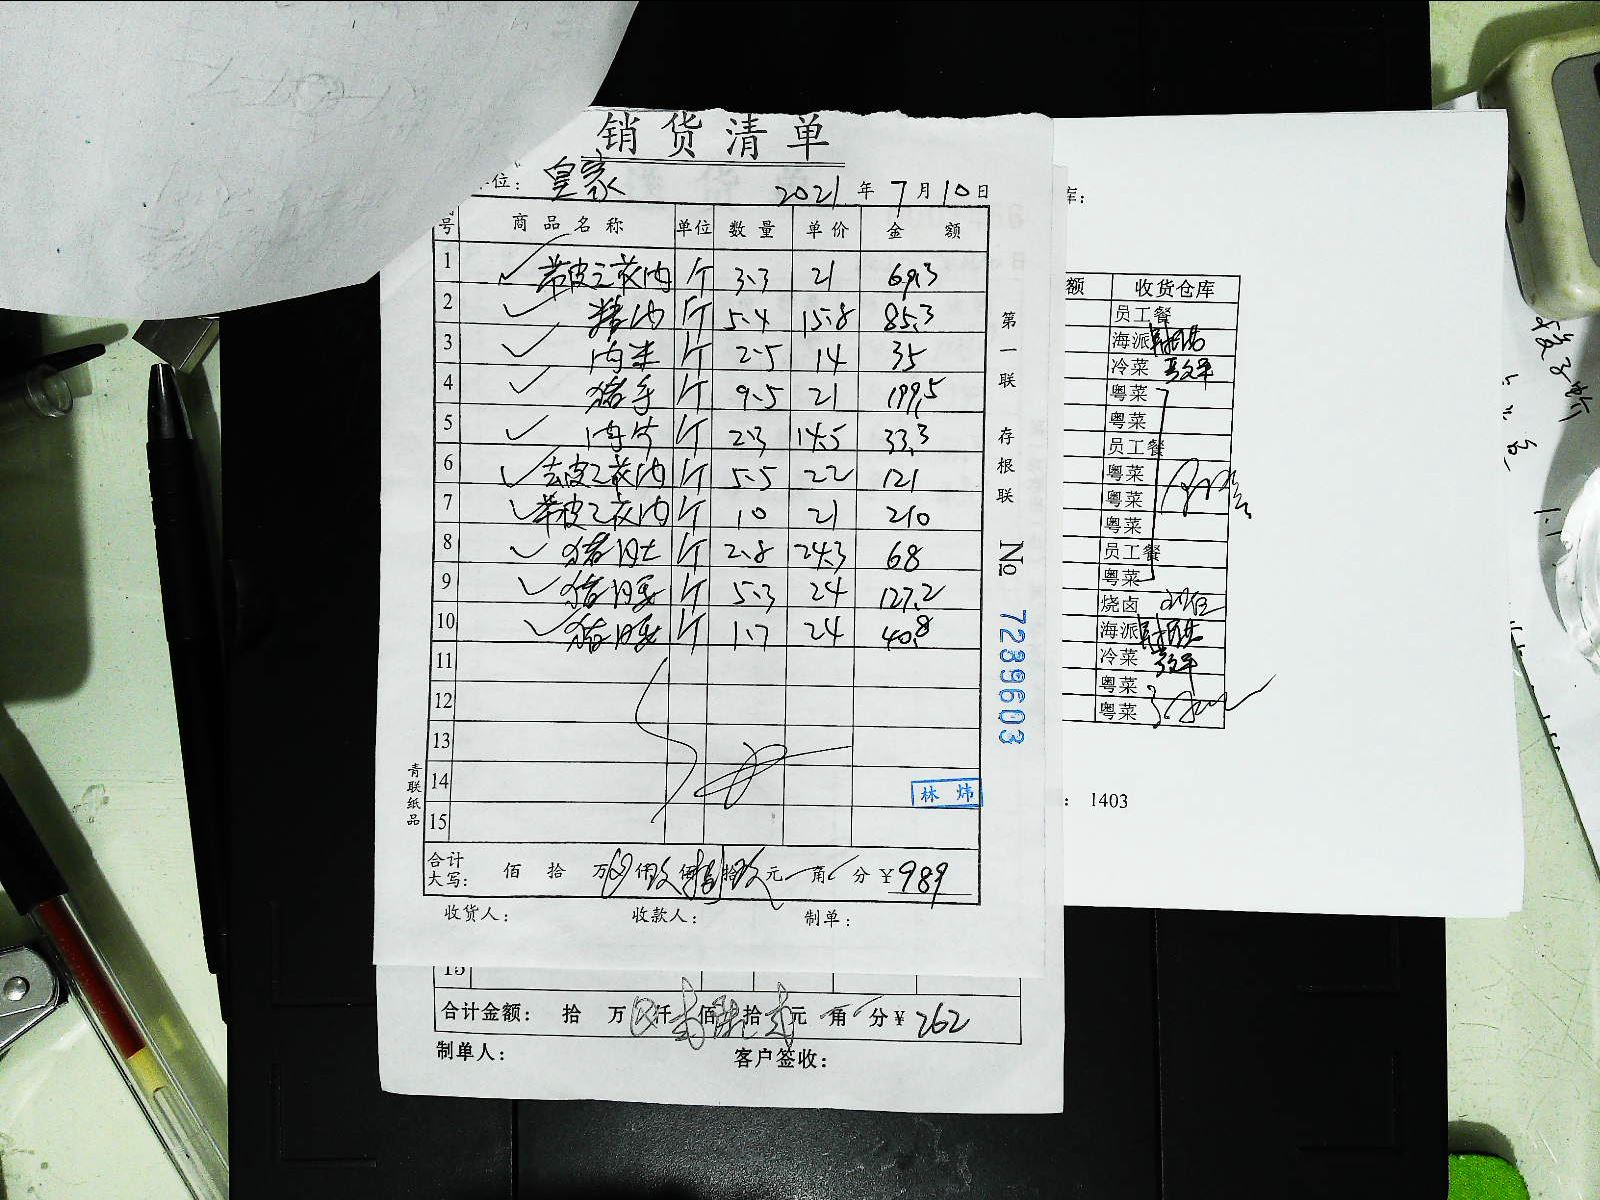 销货清单
位: 皇家 2021年7月10日
号 商品名称 单位 数量 单价 金额
1 带皮五花肉 斤 3.3 21 69.3
2 精肉 斤 5.4 15.8 85.3
3 肉末 斤 2.5 14 35
4 猪手 斤 9.5 21 199.5
5 肉片 斤 2.3 14.5 33.3
6 去皮五花肉 斤 5.5 22 121
7 带皮五花肉 斤 10 21 210
8 猪肚 斤 2.8 24.3 68
9 猪腰 斤 5.3 24 127.2
10 猪腰 斤 1.7 24 40.8
11
12
13
14
15
林炜
合计大写: 佰 拾 万 仟玖佰捌拾玖元 角 分 ¥989
收货人: 收款人: 制单:
青联纸品
第一联 存根联 № 7239603
15
合计金额: 拾 万 仟贰佰陆拾贰元 角 分¥262
制单人: 客户签收:
库:
额 收货仓库
员工餐
海派
冷菜
粤菜
粤菜
员工餐
粤菜
粤菜
粤菜
员工餐
粤菜
烧卤
海派
冷菜
粤菜
粤菜
: 1403